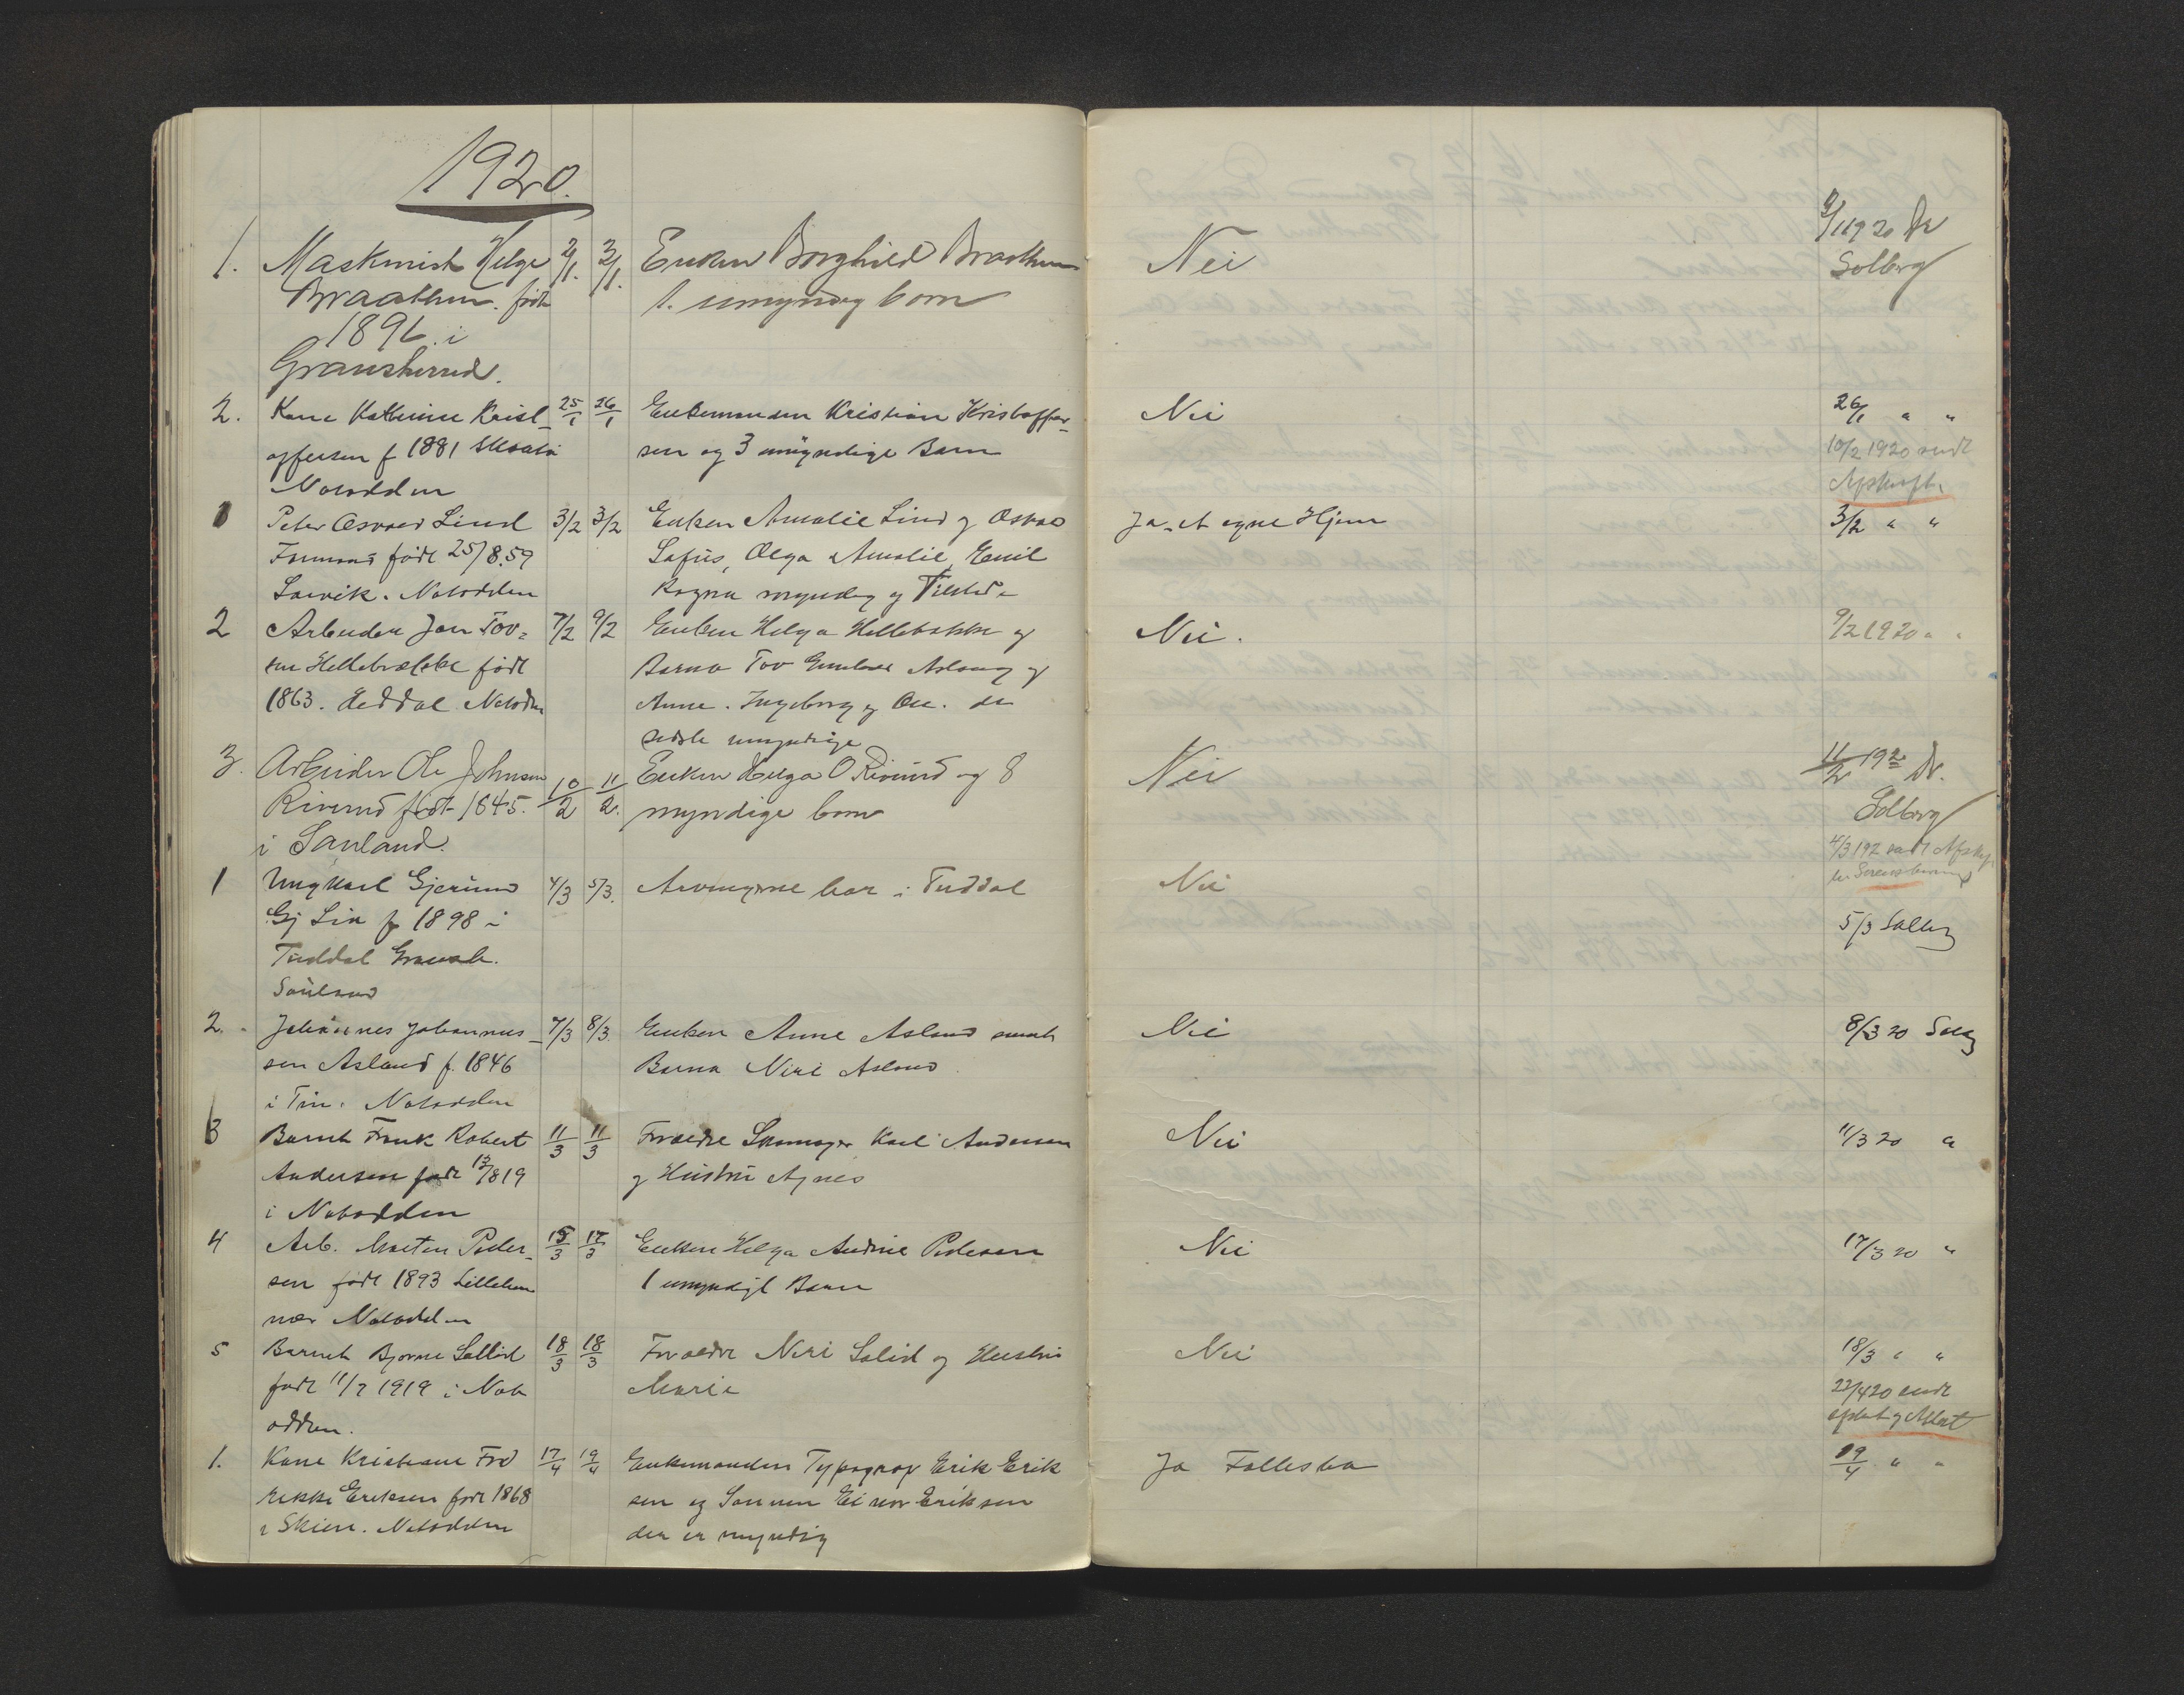 1920.
1. Maskinist Helge 2/1. 3/1. Enken Borghild Braathen Nei 2/1 1920 Dr
Braathen. født 1. umyndig barn Solberg
1896 i
Gransherred.
2. Kone Kathrine Krist- 25/1 26/1 Enkemanden Kristian Kristoffer- Nei 26/1 " "
offersen f 1881 sen og 3 umyndige Barn 10/2 1920 sendt
Notodden Afskrift.
1 Peter Osvald Lind 3/2 3/2 Enken Amalie Lind og Osvald Ja - et egne Hjem 3/2 " "
Formand født 25/8.59 Lofus, Olga Amalie, Emil
Larvik. Notodden Ragna myndig og Tilsted
2 Arbeider Jon Tov= 7/2 9/2 Enken Helga Hellebække og Nei. 9/2 1920 " "
sen Hellebrække født Barna Tov Aslaug og
1863. Heddal Notodden Anne. Ingeborg og Ole. de
sidste umyndige
3. Arbeider Ole Johnsen 10/2 11/2. Enken Helga O Rivrud og 8 Nei 11/2 1920 Dr.
Rivrud født 1845. myndige barn Solberg
i Sauland. 4/3 192 sendt Afskr.
1 Ungkarl Gjermund 4/3 5/3. Arvingerne bor i Tuddal Nei
Gj Lia f 1898 i 5/3 Solberg
Tuddal
Sauland
2. Johannes Johannes- 7/3 8/3. Enken Anne Asland samt Nei 8/3 20 Solbg
sen Asland f. 1846 Barna Niri Asland
i Tin. Notodden
3 Barnet Frank Robert 11/3 11/3 Forældre Karl Andersen Nei 11/3 20 "
Andersen født 13/8 19 og Hustru Agnes
i Notodden
4 Arb. Morten Peder- 15/3 17/3 Enken Helga Andrine Pedersen Nei 17/3 20 "
sen født 1893 1 umyndigt Barn
nær Notodden
5 Barnet Bjarne Sollid 18/3 18/3 Forældre Niri Solid og Hustru Nei 18/3 " "
født 11/7 1919 i Not Marie 22/4 20 sendt
odden.
1. Kone Kristiane Fred 17/4 19/4 Enkemanden Typograf Erik Erik Ja Fellesbo 19/4 " "
rikke Eriksen født 1868 sen og Sønnen Einar Eriksen
i Skien. Notodden der er myndig